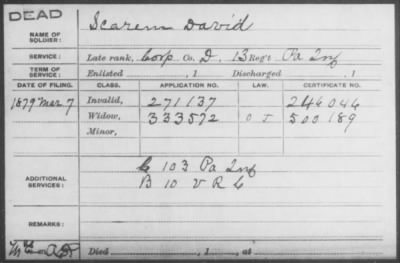 DEAD
NAME OF SOLDIER: Scarem David
SERVICE: Late rank, Corp Co. D, 13 Reg't Pa Inf
TERM OF SERVICE: Enlisted , 1 Discharged , 1
DATE OF FILING. CLASS. APPLICATION NO. LAW. CERTIFICATE NO.
1879 Mar 7 Invalid, 271137 244044
Widow, 333572 O J 500189
Minor,
ADDITIONAL SERVICES: C 103 Pa Inf
B 10 V R C
REMARKS:
Died , 1 , at